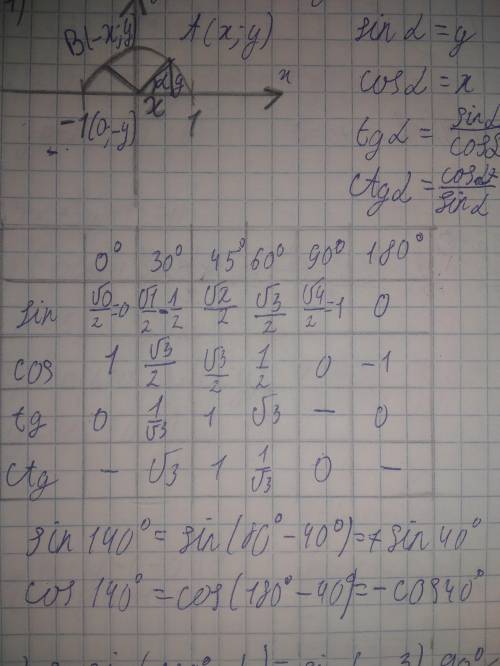 B(-x;y) A(x;y) sin α = y
x
α y cos α = x
x
-1(0;-y) 1 tg α = sin α / cos α
ctg α = cos α / sin α
0° 30° 45° 60° 90° 180°
sin √0/2=0 √1/2=1/2 √2/2 √3/2 √4/2=1 0
cos 1 √3/2 √3/2 1/2 0 -1
tg 0 1/√3 1 √3 — 0
ctg — √3 1 1/√3 0 —
sin 140° = sin(180° - 40°) = + sin 40°
cos 140° = cos(180° - 40°) = - cos 40°